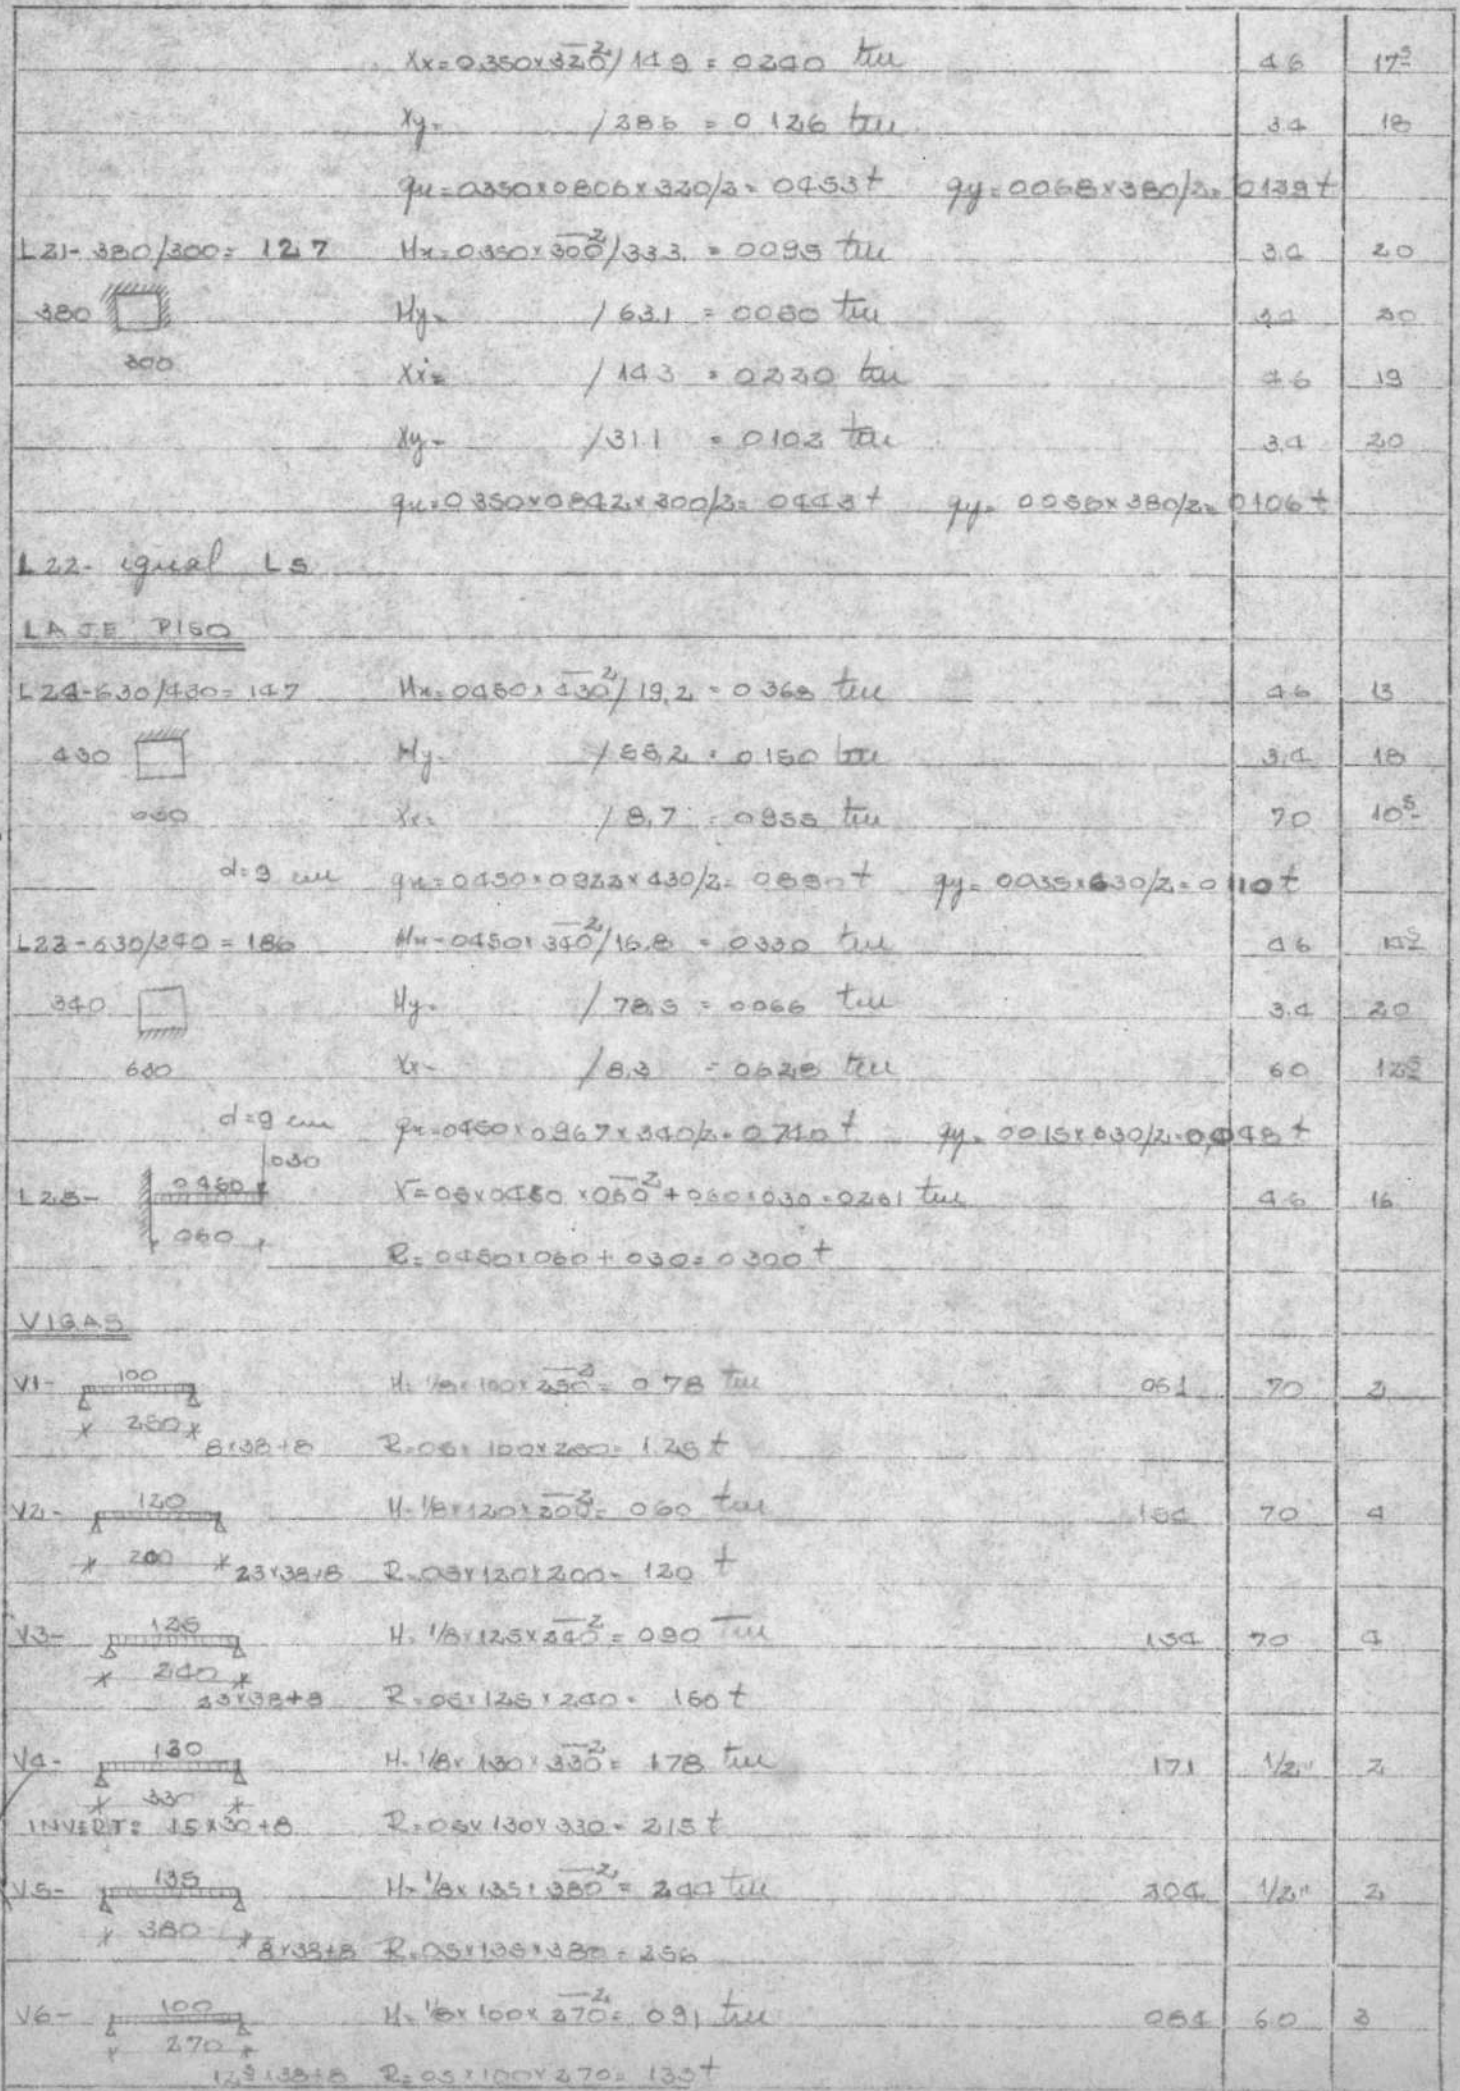 Xx=0350×320²/149=0240 tm 46 17⁵
Xy= /286=0126 tm 34 18
qx=0350×0806×320/2=0453t qy=0068×380/2=0129t
L21-380/300=127 Mx=0350×300²/333=0095 tm 34 20
380 My= /631=0050 tm 34 20
300 Xx= /143=0220 tm 46 19
Xy= /311=0102 tm 34 20
qx=0350×0842×300/2=0443t qy=0056×380/2=0106t
L22- igual L5
LAJE PISO
L24-630/430=147 Mx=0450×430²/19,2=0368 tm 46 13
430 My= /55,2=0150 tm 3,4 18
630 Xx= /8,7=0955 tm 70 10⁵
d=9 cm qx=0450×0922×430/2=0890t qy=0035×630/2=0110t
L23-630/340=186 Mx=0450×340²/15,8=0330 tm 46 14⁵
340 My= /78,5=0066 tm 3,4 20
630 Xx- /8,3=0628 tm 60 12⁵
d=9 cm qx=0450×0967×340/2=0740t qy=0015×630/2=0048t
030
L25- 0450 X=05×0450×060²+060×030=0261 tm 46 16
060 R=0450×060+030=0300t
VIGAS
V1- 100 M=1/8×100×250²=078 tm 051 70 2
250 8×38+8 R=05×100×250=1.25t
V2- 120 M=1/8×120×200²=060 tm 154 70 4
200 23×38+8 R=05×120×200=120t
V3- 125 M=1/8×125×240²=090 tm 154 70 4
240 23×38+8 R=05×125×240=150t
V4- 130 M=1/8×130×330²=178 tm 171 1/2" 2
330
INVERT: 15×30+8 R=05×130×330=215t
V5- 135 M=1/8×135×380²=244 tm 204 1/2" 2
380 8×38+8 R=05×135×380=256
V6- 100 M=1/8×100×270²=091 tm 084 60 3
270
12⁵×38+8 R=05×100×270=135t